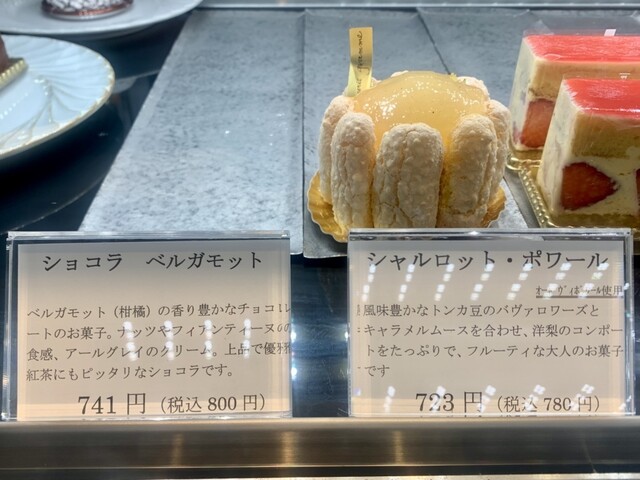 ショコラ ベルガモット
ベルガモット（柑橘）の香り豊かなチョコレ
ートのお菓子。ナッツやフィアンティーヌの
食感、アールグレイのクリーム。上品で優雅
紅茶にもピッタリなショコラです。
741円（税込800円）
シャルロット・ポワール
オー・ド・ヴィ・ポワール使用
風味豊かなトンカ豆のバヴァロワーズと
キャラメルムースを合わせ、洋梨のコンポー
トをたっぷりで、フルーティな大人のお菓子
です
723円（税込780円）